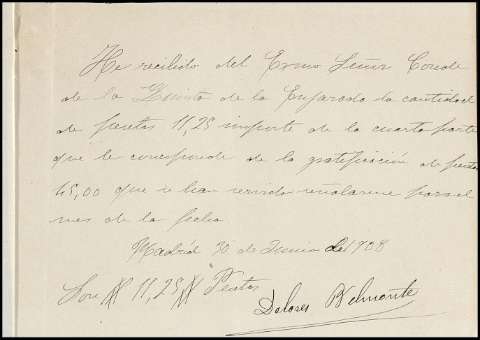 He recibido del Exmo Señor Conde
de la Quinta de la Enjarada la cantidad
de pesetas 11,25 importe de la cuarta parte
que le corresponde de la gratificación de pesetas
45,00 que se han servido señalarme para el
mes de la fecha
Madrid 30 de Junio de 1908
Son # 11,25 # Pesetas
Dolores Belmonte